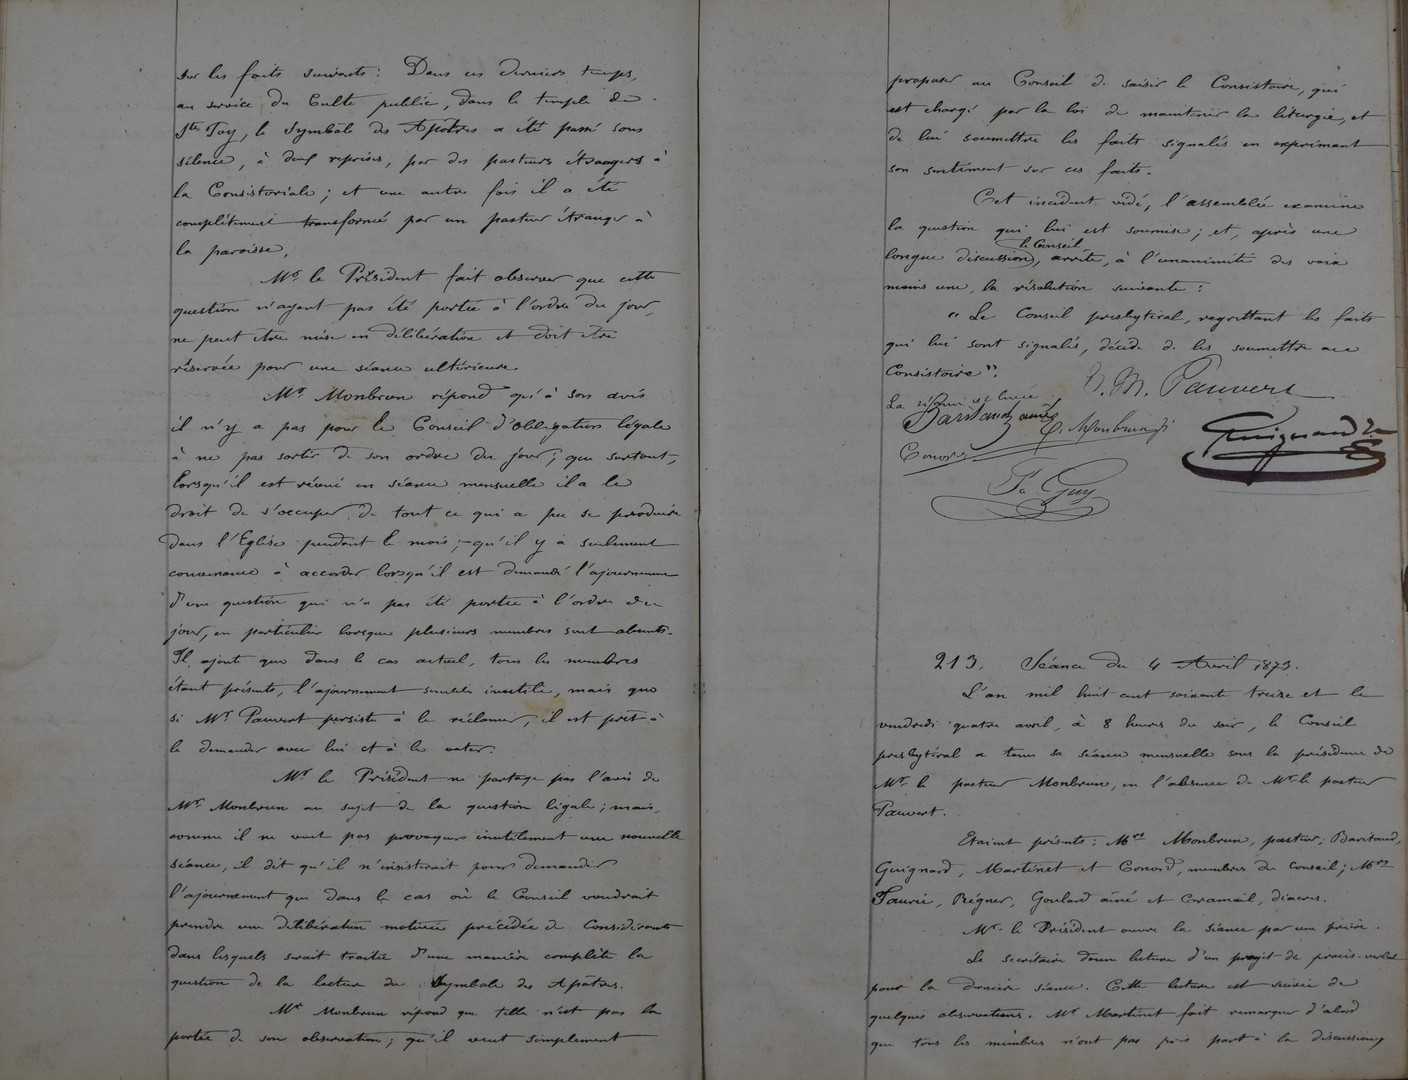 sur les faits suivants : Dans ces derniers temps,
au service du Culte public, dans le temple de
Ste Foy, le Symbole des Apôtres a été passé sous
silence, à deux reprises, par des pasteurs étrangers à
la Consistoriale ; et une autre fois il a été
complètement transformé par un pasteur étranger à
la paroisse.
Mr le Président fait observer que cette
question n'ayant pas été portée à l'ordre du jour,
ne peut être mise en délibération et doit être
réservée pour une séance ultérieure
Mr Monbrun répond qu'à son avis
il n'y a pas pour le Conseil d'obligation légale
à ne pas sortir de son ordre du jour ; que surtout,
lorsqu'il est réuni en séance mensuelle il a le
droit de s'occuper de tout ce qui a pu se produire
dans l'Eglise pendant le mois ; qu'il y a seulement
convenance à accorder lorsqu'il est demandé l'ajournement
d'une question qui n'a pas été portée à l'ordre du
jour, en particulier lorsque plusieurs membres sont absents.
Il ajoute que dans le cas actuel, tous les membres
étant présents, l'ajournement semble inutile, mais que
si Mr Pauvert persiste à le réclamer, il est prêt à
le demander avec lui et à le voter.
Mr le Président ne partage pas l'avis de
Mr Monbrun au sujet de la question légale ; mais,
comme il ne veut pas provoquer inutilement une nouvelle
séance, il dit qu'il n'insisterait pour demander
l'ajournement que dans le cas où le Conseil voudrait
prendre une délibération motivée précédée de Considérants
dans lesquels serait traitée d'une manière complète la
question de la lecture du Symbole des Apôtres.
Mr Monbrun répond que telle n'est pas la
portée de son observation ; qu'il veut simplement
proposer au Conseil de saisir le Consistoire, qui
est chargé par la loi de maintenir la liturgie, et
de lui soumettre les faits signalés en exprimant
son sentiment sur ces faits.
Cet incident vidé, l'assemblée examine
la question qui lui est soumise ; et, après une
le Conseil
longue discussion, arrête, à l'unanimité des voix
moins une, la résolution suivante :
" Le Conseil presbytéral, regrettant les faits
qui lui sont signalés, décide de les soumettre au
Consistoire ".
La séance est levée
Pauvert
Baritaud aîné
Monbrun
Guignard
Conord
Guy
213. Séance du 4 Avril 1873.
L'an mil huit cent soixante treize et le
vendredi quatre avril, à 8 heures du soir, le Conseil
presbytéral a tenu sa séance mensuelle sous la présidence de
Mr le pasteur Monbrun, en l'absence de Mr le pasteur
Pauvert.
Etaient présents : Mrs Monbrun, pasteur ; Baritaud,
Guignard, Martinet et Conord, membres du Conseil ; Mrs
Faurie, Régner, Goulard aîné et Cramail, diacres.
Mr le Président ouvre la séance par une prière.
Le secrétaire donne lecture d'un projet de procès-verbal
pour la dernière séance. Cette lecture est suivie de
quelques observations. Mr Martinet fait remarquer d'abord
que tous les membres n'ont pas pris part à la discussion,